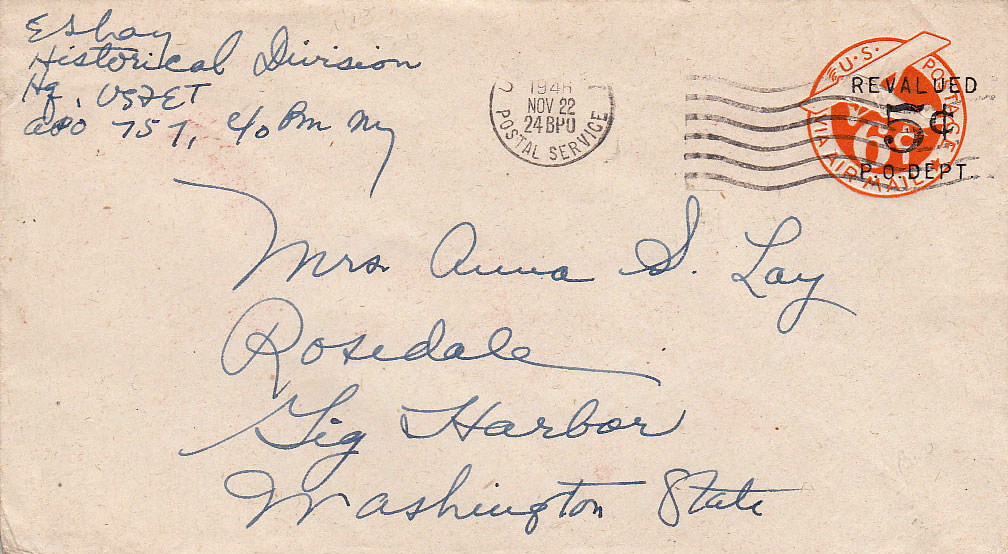 E S Lay
Historical Division
Hq, USFET
APO 757, c/o Pm Ny
1946
NOV 22
24 BPO
POSTAL SERVICE
U.S. POSTAGE
VIA AIR MAIL
6¢
REVALUED
5¢
P.O. DEPT.
Mrs. Anna S. Lay
Rosedale
Gig Harbor
Washington State